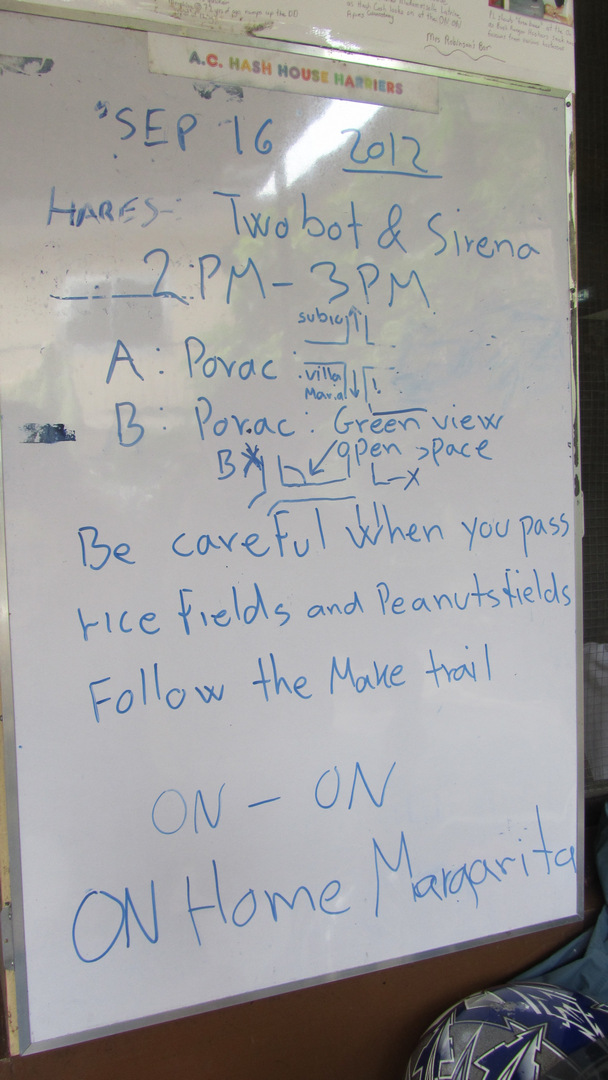 Mrs Robinson's Bar
A.C. HASH HOUSE HARRIERS
SEP 16 2012
HARES- Twobot & Sirena
2 PM - 3 PM
subic
A: Porac:
villa
Mar.a
B: Porac: Green view
open space
B X
X
Be careful When you pass
rice fields and Peanuts fields
Follow the Make trail
ON - ON
ON Home Margarita